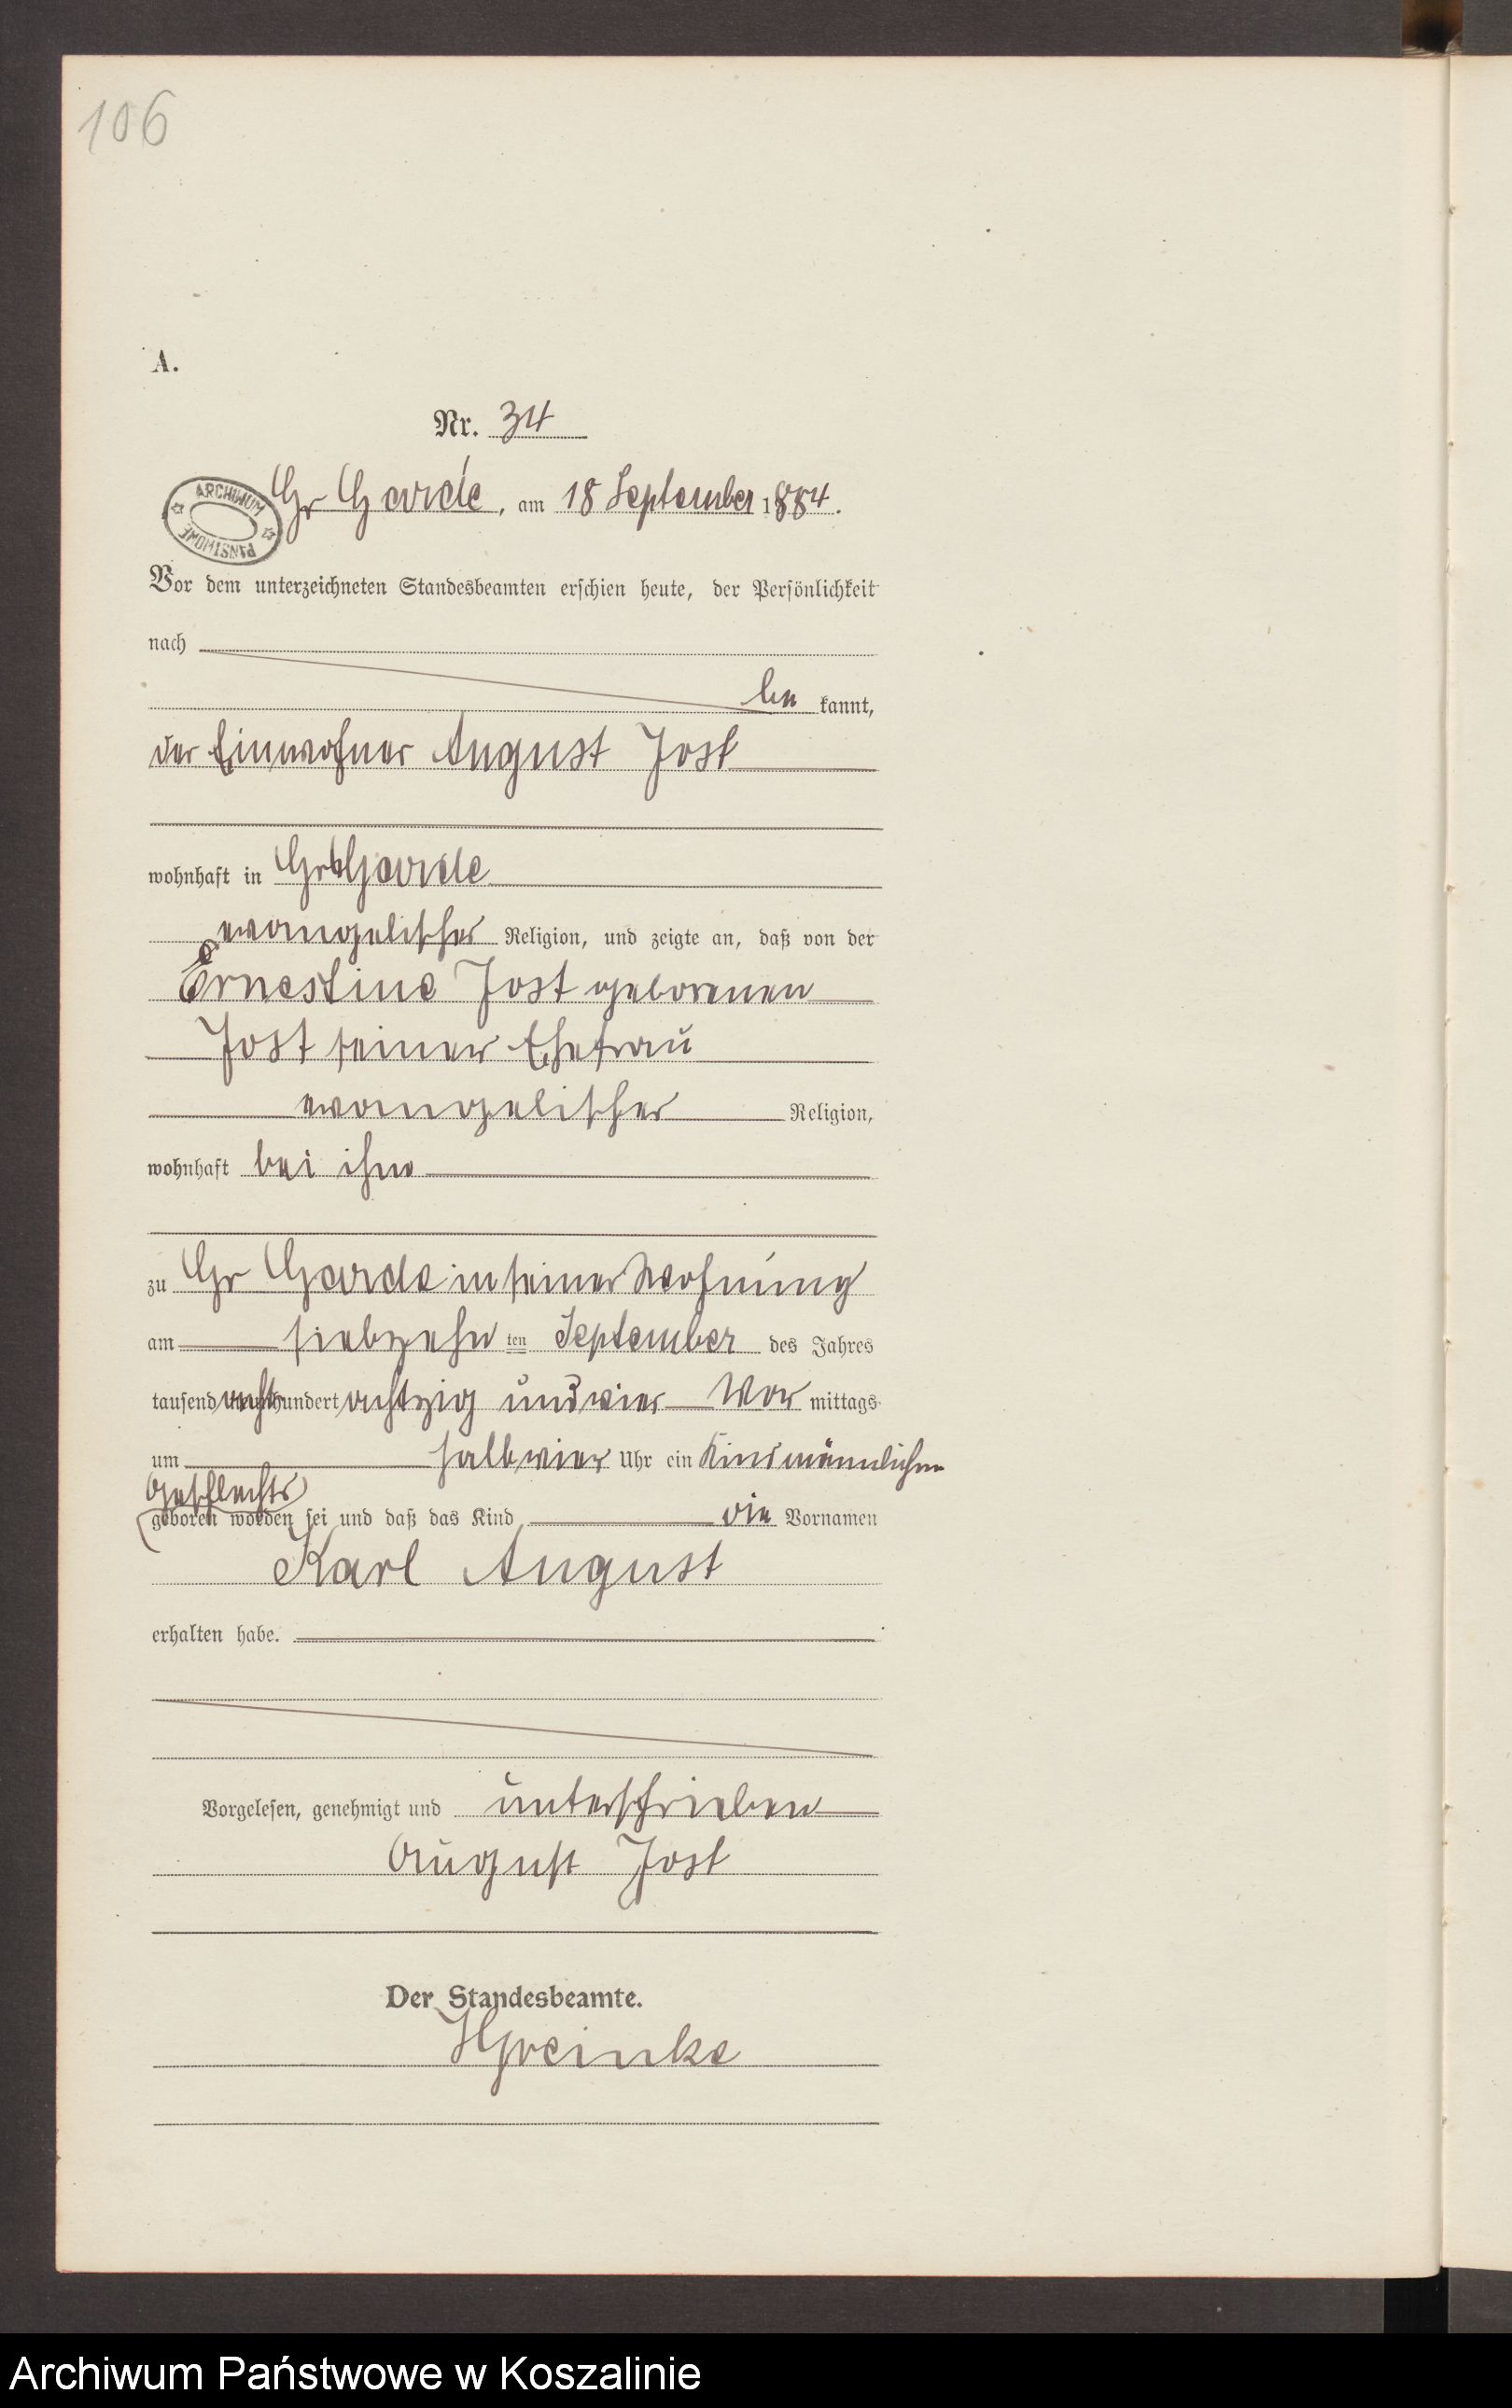 106
A.
Nr. 34
ARCHIWUM PAŃSTWOWE
Gr Garde, am 18 September 1884.
Vor dem unterzeichneten Standesbeamten erschien heute, der Persönlichkeit
nach
be kannt,
der Einwohner August Jost
wohnhaft in Gr Garde
evangelischer Religion, und zeigte an, daß von der
Ernestine Jost geborenen
Jost seiner Ehefrau
evangelischer Religion,
wohnhaft bei ihm
zu Gr Garde in seiner Wohnung
am siebzehn ten September des Jahres
tausend acht hundert achtzig und vier Vor mittags
um halb vier Uhr ein Kind männlichen
Geschlechts
geboren worden sei und daß das Kind die Vornamen
Karl August
erhalten habe.
Vorgelesen, genehmigt und unterschrieben
August Jost
Der Standesbeamte.
Archiwum Państwowe w Koszalinie